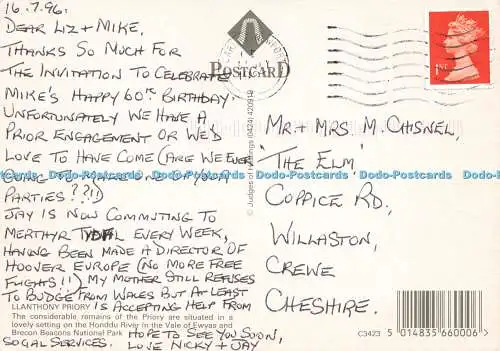 16.7.96.
DEAR LIZ + MIKE,
THANKS SO MUCH FOR
THE INVITATION TO CELEBRATE
MIKE'S HAPPY 60TH BIRTHDAY.
UNFORTUNATELY WE HAVE A
PRIOR ENGAGEMENT OR WE'D
LOVE TO HAVE COME (ARE WE EVER
GOING TO MAKE ONE OF YOUR
PARTIES??!)
JAY IS NOW COMMUTING TO
MERTHYR TYDFIL EVERY WEEK,
HAVING BEEN MADE A DIRECTOR OF
HOOVER EUROPE (NO MORE FREE
FLIGHTS!!) MY MOTHER STILL REFUSES
TO BUDGE FROM WALES BUT AT LEAST
IS ACCEPTING HELP FROM
SOCIAL SERVICES. HOPE TO SEE YOU SOON,
LOVE NICKY + JAY
LLANTHONY PRIORY
The considerable remains of the Priory are situated in a
lovely setting on the Honddu River in the Vale of Ewyas and
Brecon Beacons National Park
POSTCARD
© Judges of Hastings (0424) 420919
1ST
MR. + MRS. M. CHISNEL,
'THE ELM'
COPPICE RD,
WILLASTON,
CREWE
CHESHIRE.
C3423
5 014835 660006
Dodo-Postcards Dodo-Postcards Dodo-Postcards Dodo-Postcards Dodo-Postcards